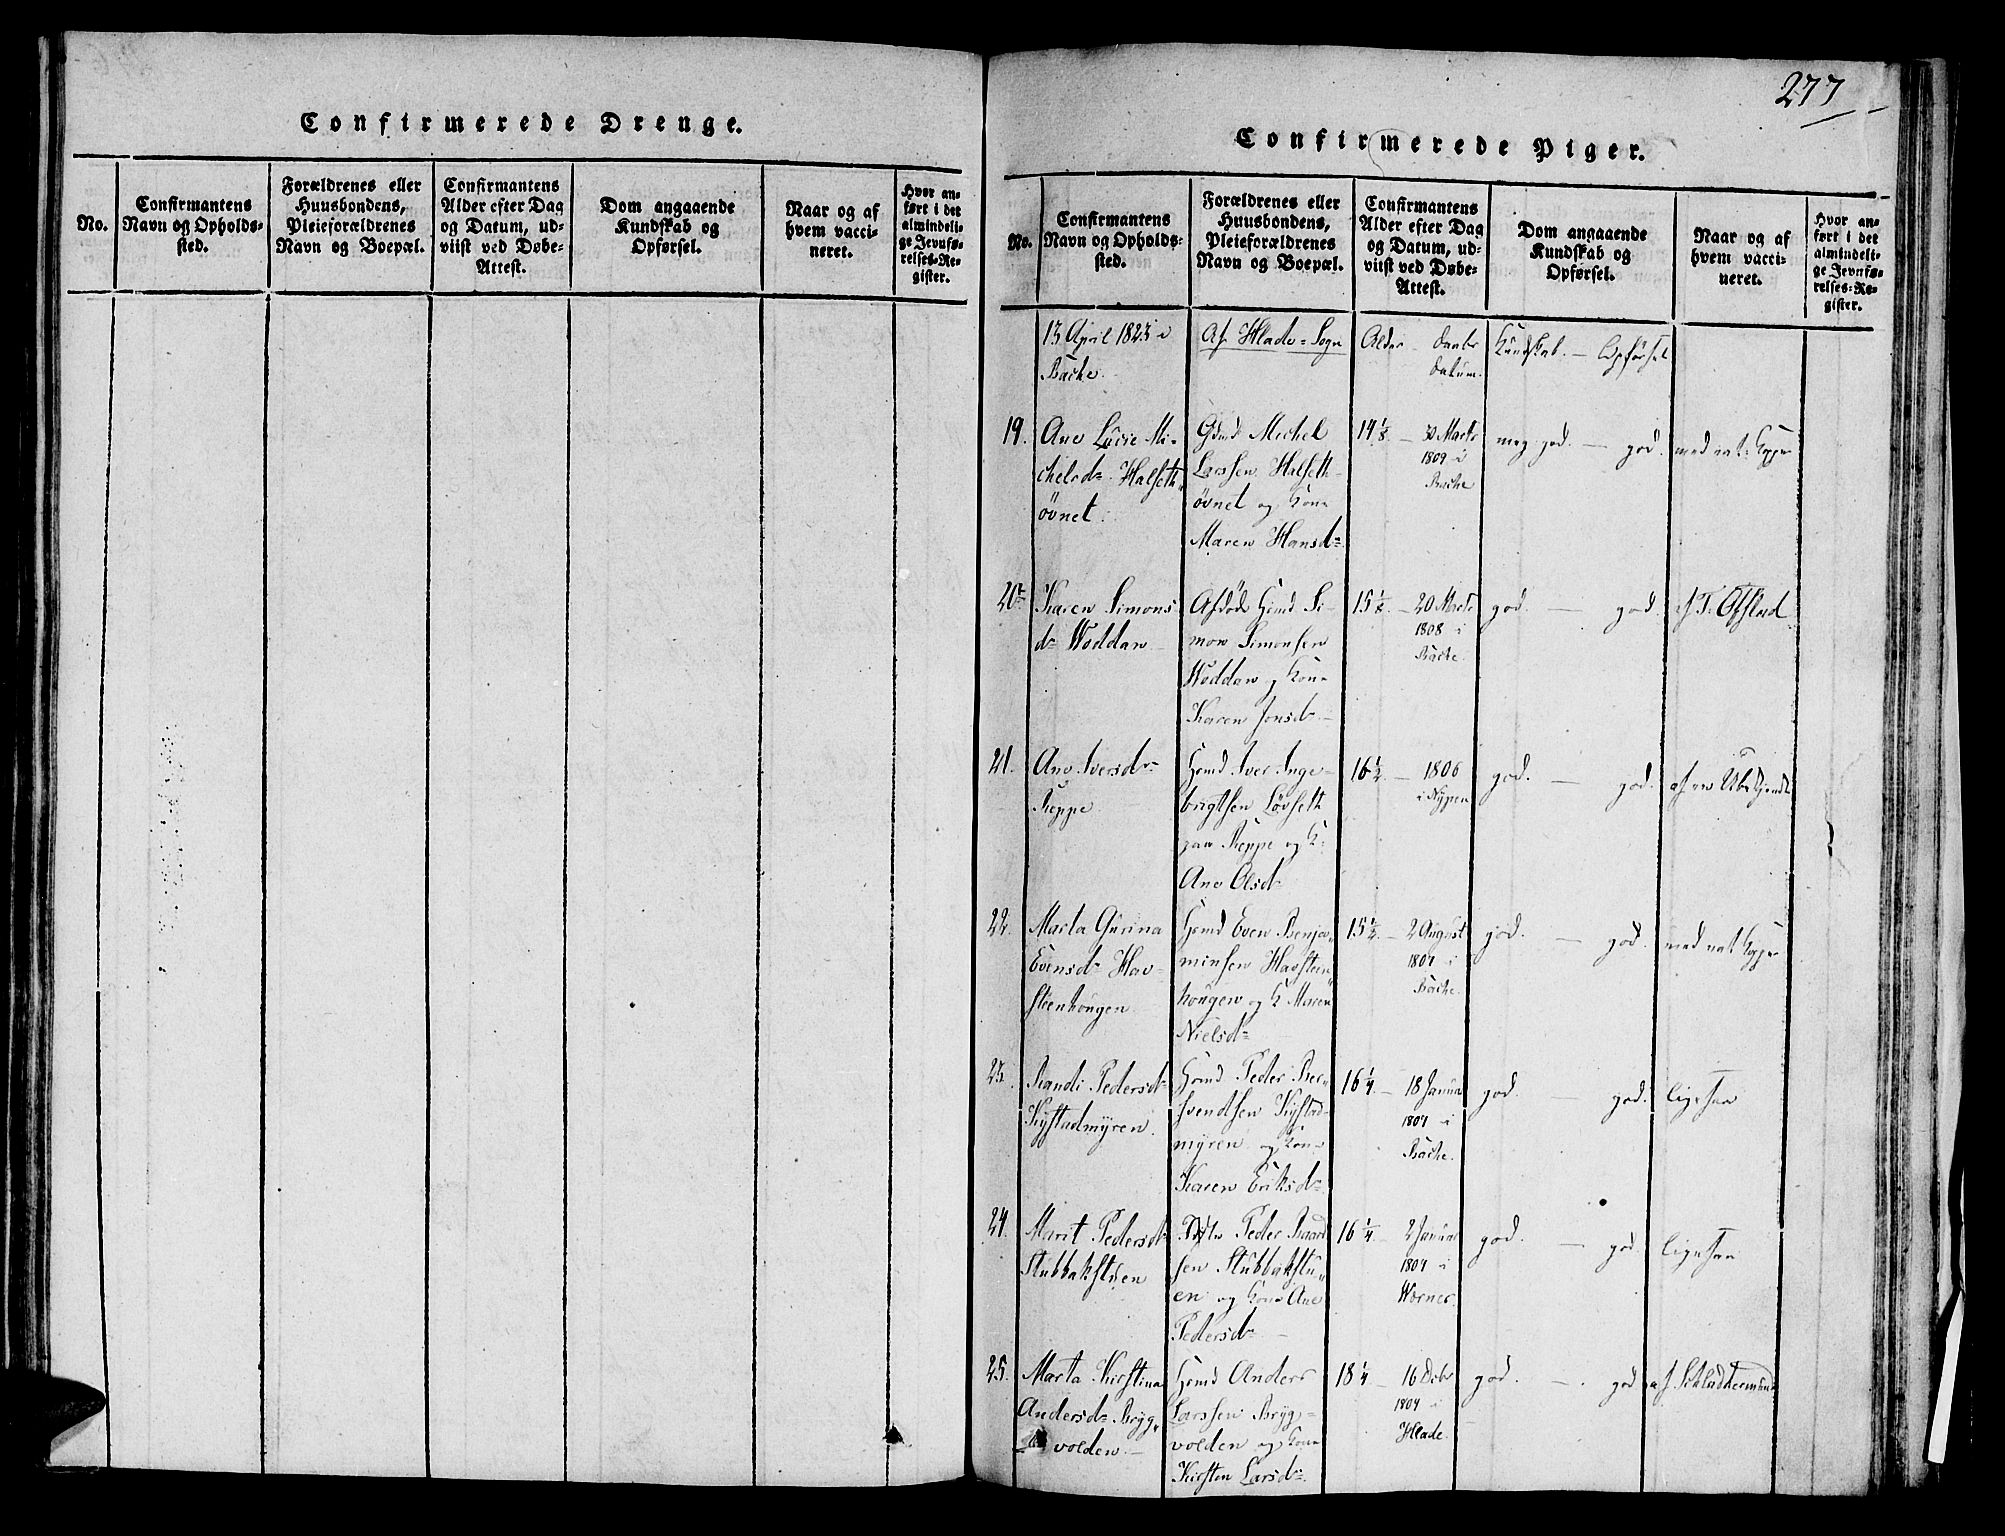 277
Confirmerede Drenge.
No.
Confirmantens
Navn og Opholds-
sted.
Forældrenes eller
Huusbondens,
Pleieforældrenes
Navn og Boepæl.
Confirmantens
Alder efter Dag
og Datum, ud-
viist ved Døbe-
Attest.
Dom angaaende
Kundskab og
Opførsel.
Naar og af
hvem vacci-
neret.
Hvor an-
ført i det
almindeli-
ge Jevnfø-
relses-Re-
gister.
Confirmerede Piger.
No.
Confirmantens
Navn og Opholds-
sted.
Forældrenes eller
Huusbondens,
Pleieforældrenes
Navn og Boepæl.
Confirmantens
Alder efter Dag
og Datum, ud-
viist ved Døbe-
Attest.
Dom angaaende
Kundskab og
Opførsel.
Naar og af
hvem vacci-
neret.
Hvor an-
ført i det
almindeli-
ge Jevnfø-
relses-Re-
gister.
13 April 1823 i
Bache.
Af Hlade-Sogn
Alder - Daabs
Datum.
Kundskab. — Opførsel
19.
Ane Lucie Mi-
chelsd. Halseth
øvnet.
Gmd Michel
Larssen Halseth-
øvnet og Kon
Maren Hansd.
14 — 30 Marts
1809 i
Bache
meg god. — god.
med nat: Kopper
20
Karen Simons
d. Woddan
Afdøde Hmd Si-
mon Simonsen
Woddan og Kon
Karen Jonsd.
15 — 20 Marts
1808 i
Bache.
god. — god.
af T. Ofstad
21.
Ane Iversd.
Reppe
Hmd Iver Inge-
brigtsen Løvseth
paa Reppe og K:
Ane Olsd
16 1/2 — 1806
i Nypen
god. — god.
af en Ubekjendt
22.
Marta Gurina
Evensd. Hav-
steenhougen
Hmd Even Benja
minsen Havsteen
hougen og K Maren
Nielsd
15 1/2 — 2 August
1807 i
Bache.
god. — god.
med nat Kopper
23.
Randi Pedersd
Kystadmyren.
Hmd Peder Ber
svendsen Kystad-
myren og Kon
Karen Eriksd.
16 1/4 — 18 Janua
1807 i
Bache.
god. — god.
ligesaa
24.
Marit Pedersd
Stubbakstuen
Peder Baard
sen Stubbakstu
en og Kon Ane
Pedersd
16 1/4 — 2 Janua
1807 i
Wornes.
god. — god.
ligesaa
25.
Marta Kirstina
Andersd. Bryg
volden.
Hmd Anders
Larssen Bryg-
volden og Kon
Kirsten Larsd.
18 1/4 — 16 Octbr
1804 i
Hlade.
god. — god
af